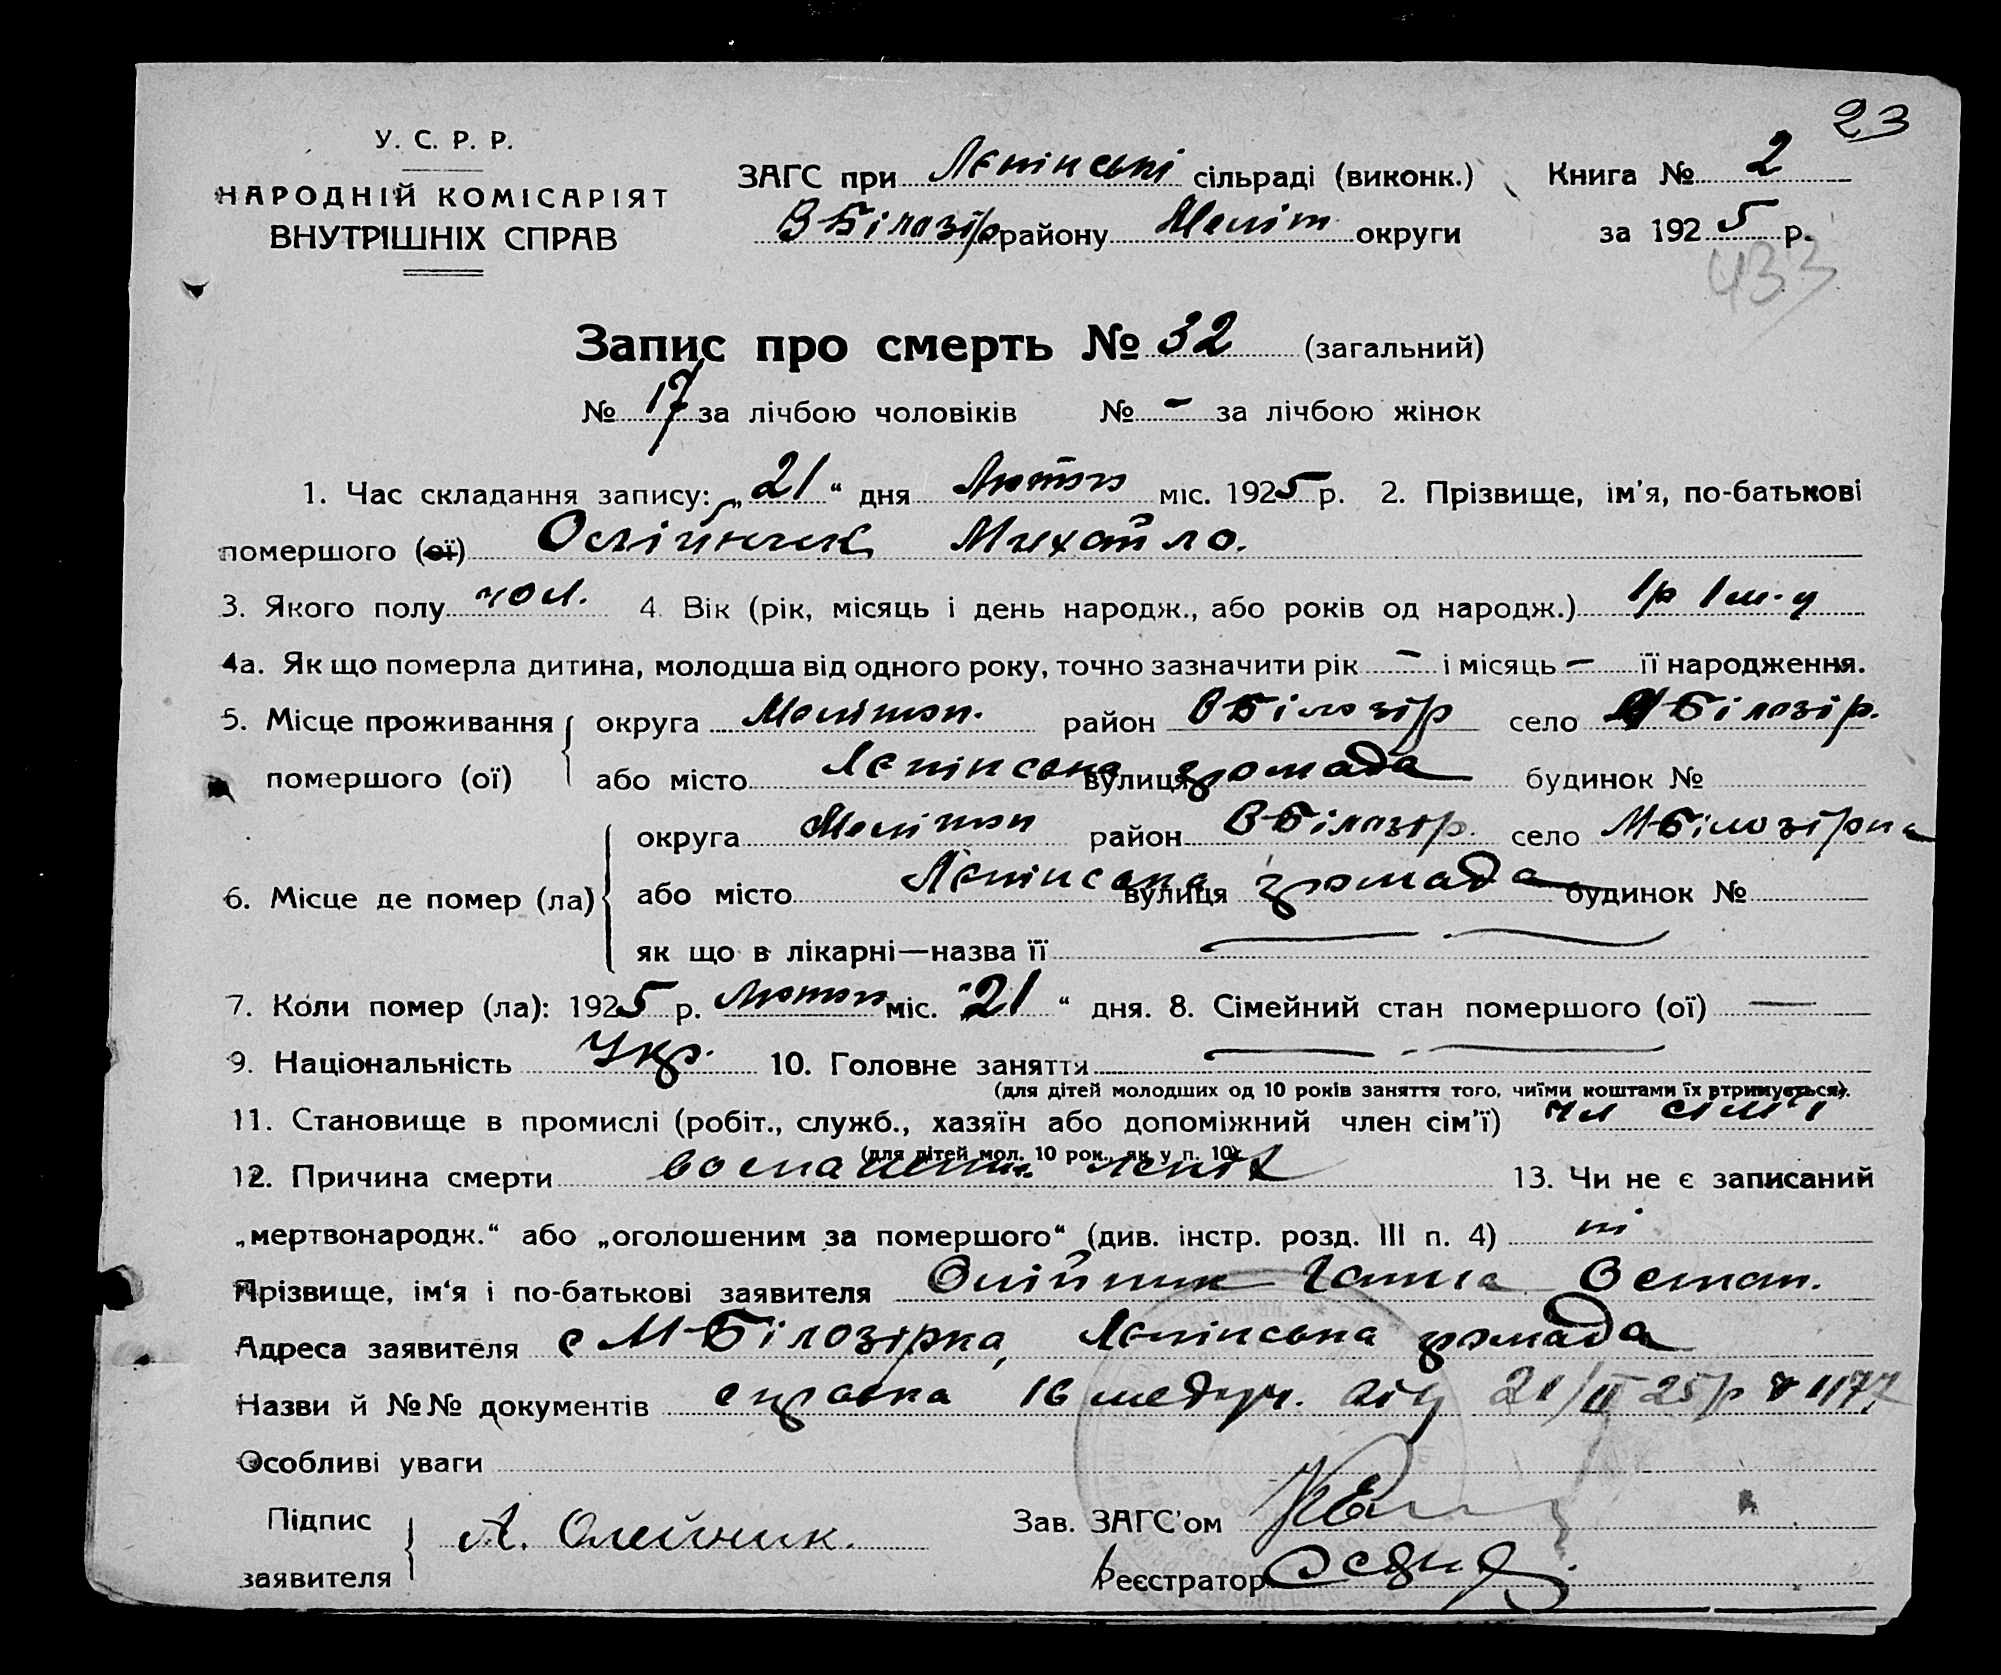 23
У. С. Р. Р.
НАРОДНІЙ КОМІСАРІЯТ
ВНУТРІШНІХ СПРАВ
ЗАГС при Лєнінські сільраді (виконк.) Книга № 2
В Білозір району Меліт округи за 1925 р.
433
Запис про смерть № 32 (загальний)
№ 17 за лічбою чоловіків № - за лічбою жінок
1. Час складання запису: „21“ дня Лютого міс. 1925 р. 2. Прізвище, ім'я, по-батькові
помершого (ої) Олійник Михайло.
3. Якого полу чол. 4. Вік (рік, місяць і день народж., або років од народж.) 1р 1м-ц
4а. Як що померла дитина, молодша від одного року, точно зазначити рік - і місяць - її народження.
5. Місце проживання округа Мелітоп. район В Білозір село М Білозір.
помершого (ої) або місто Лєнінська вулиця громада будинок №
округа Мелітоп район В Білозір. село М-Білозірка
6. Місце де помер (ла) або місто Лєнінська вулиця громада будинок №
як що в лікарні—назва її
7. Коли помер (ла): 1925 р. Лютого міс. „21“ дня. 8. Сімейний стан помершого (ої) —
9. Національність Укр. 10. Головне заняття
(для дітей молодших од 10 років заняття того, чиїми коштами їх втримується).
11. Становище в промислі (робіт., служб., хазяїн або допоміжний член сім'ї) чл сімї
(для дітей мол. 10 рок., як у п. 10).
12. Причина смерти воспаление легких 13. Чи не є записаний
„мертвонародж.“ або „оголошеним за помершого“ (див. інстр. розд. III п. 4) ні
Прізвище, ім'я і по-батькові заявителя Олійник Ганна Остап.
Адреса заявителя с М-Білозірка, Лєнінська громада
Назви й №№ документів справка 16 медуч. від 21/II 25р № 1177
Особливі уваги
Підпис
заявителя А. Олейник.
Зав. ЗАГС'ом
Реєстратор